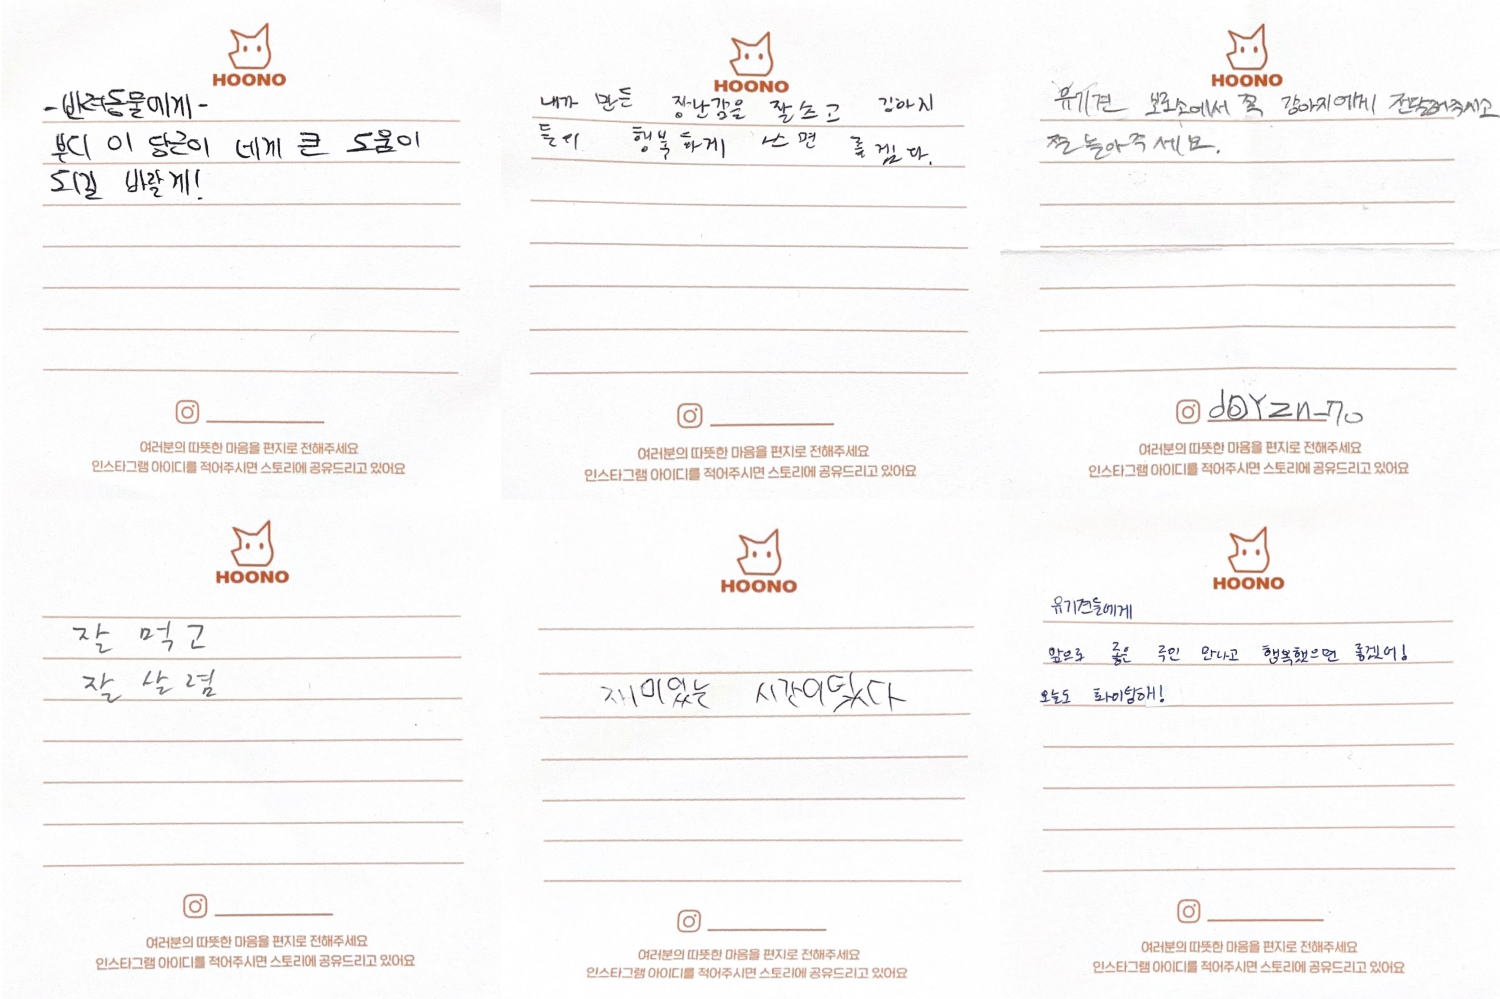 HOONO
-반려동물에게-
부디 이 당근이 네게 큰 도움이
되길 바랄게!
여러분의 따뜻한 마음을 편지로 전해주세요
인스타그램 아이디를 적어주시면 스토리에 공유드리고 있어요
HOONO
내가 만든 장난감을 잘쓰고 강아지
들이 행복하게 쓰면 좋겠다.
여러분의 따뜻한 마음을 편지로 전해주세요
인스타그램 아이디를 적어주시면 스토리에 공유드리고 있어요
HOONO
유기견 보호소에서 꼭 강아지에게 전달해주시고
잘 놀아주세요.
여러분의 따뜻한 마음을 편지로 전해주세요
인스타그램 아이디를 적어주시면 스토리에 공유드리고 있어요
HOONO
잘 먹고
잘 살렴
여러분의 따뜻한 마음을 편지로 전해주세요
인스타그램 아이디를 적어주시면 스토리에 공유드리고 있어요
HOONO
재미있는 시간이었다
여러분의 따뜻한 마음을 편지로 전해주세요
인스타그램 아이디를 적어주시면 스토리에 공유드리고 있어요
HOONO
유기견들에게
앞으로 좋은 주인 만나고 행복했으면 좋겠어!
오늘도 화이팅해!
여러분의 따뜻한 마음을 편지로 전해주세요
인스타그램 아이디를 적어주시면 스토리에 공유드리고 있어요